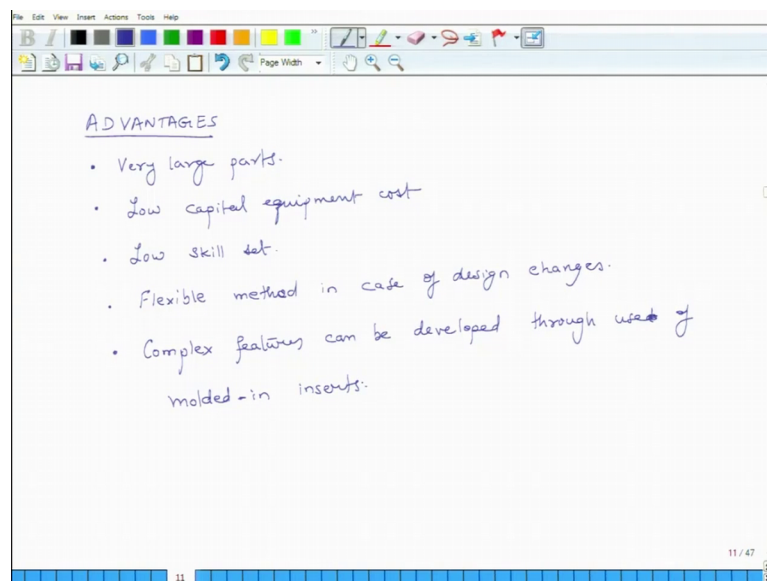 File Edit View Insert Actions Tools Help
B I
Page Width
ADVANTAGES
• Very large parts.
• Low capital equipment cost
• Low skill set.
• Flexible method in case of design changes.
• Complex features can be developed through use of
molded-in inserts.
11/47
11